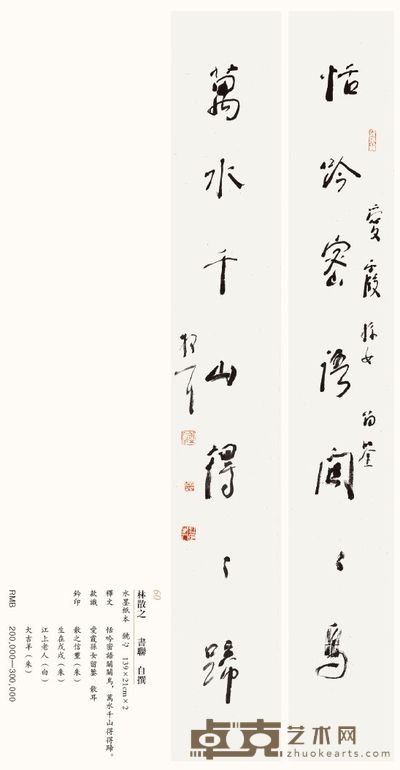 愛霞孫女留鑒
恬吟密語關〻鳥
萬水千山得〻蹄
散耳
60
林散之 書聯 自撰
水墨紙本 鏡心 139×21cm×2
釋文 恬吟密語關關鳥，萬水千山得得蹄。
款識 愛霞孫女留鑒 散耳
鈐印 散之信璽（朱）
生在戊戌（朱）
江上老人（白）
大吉羊（朱）
RMB 200,000—300,000
卓克艺术网
zhuokearts.com